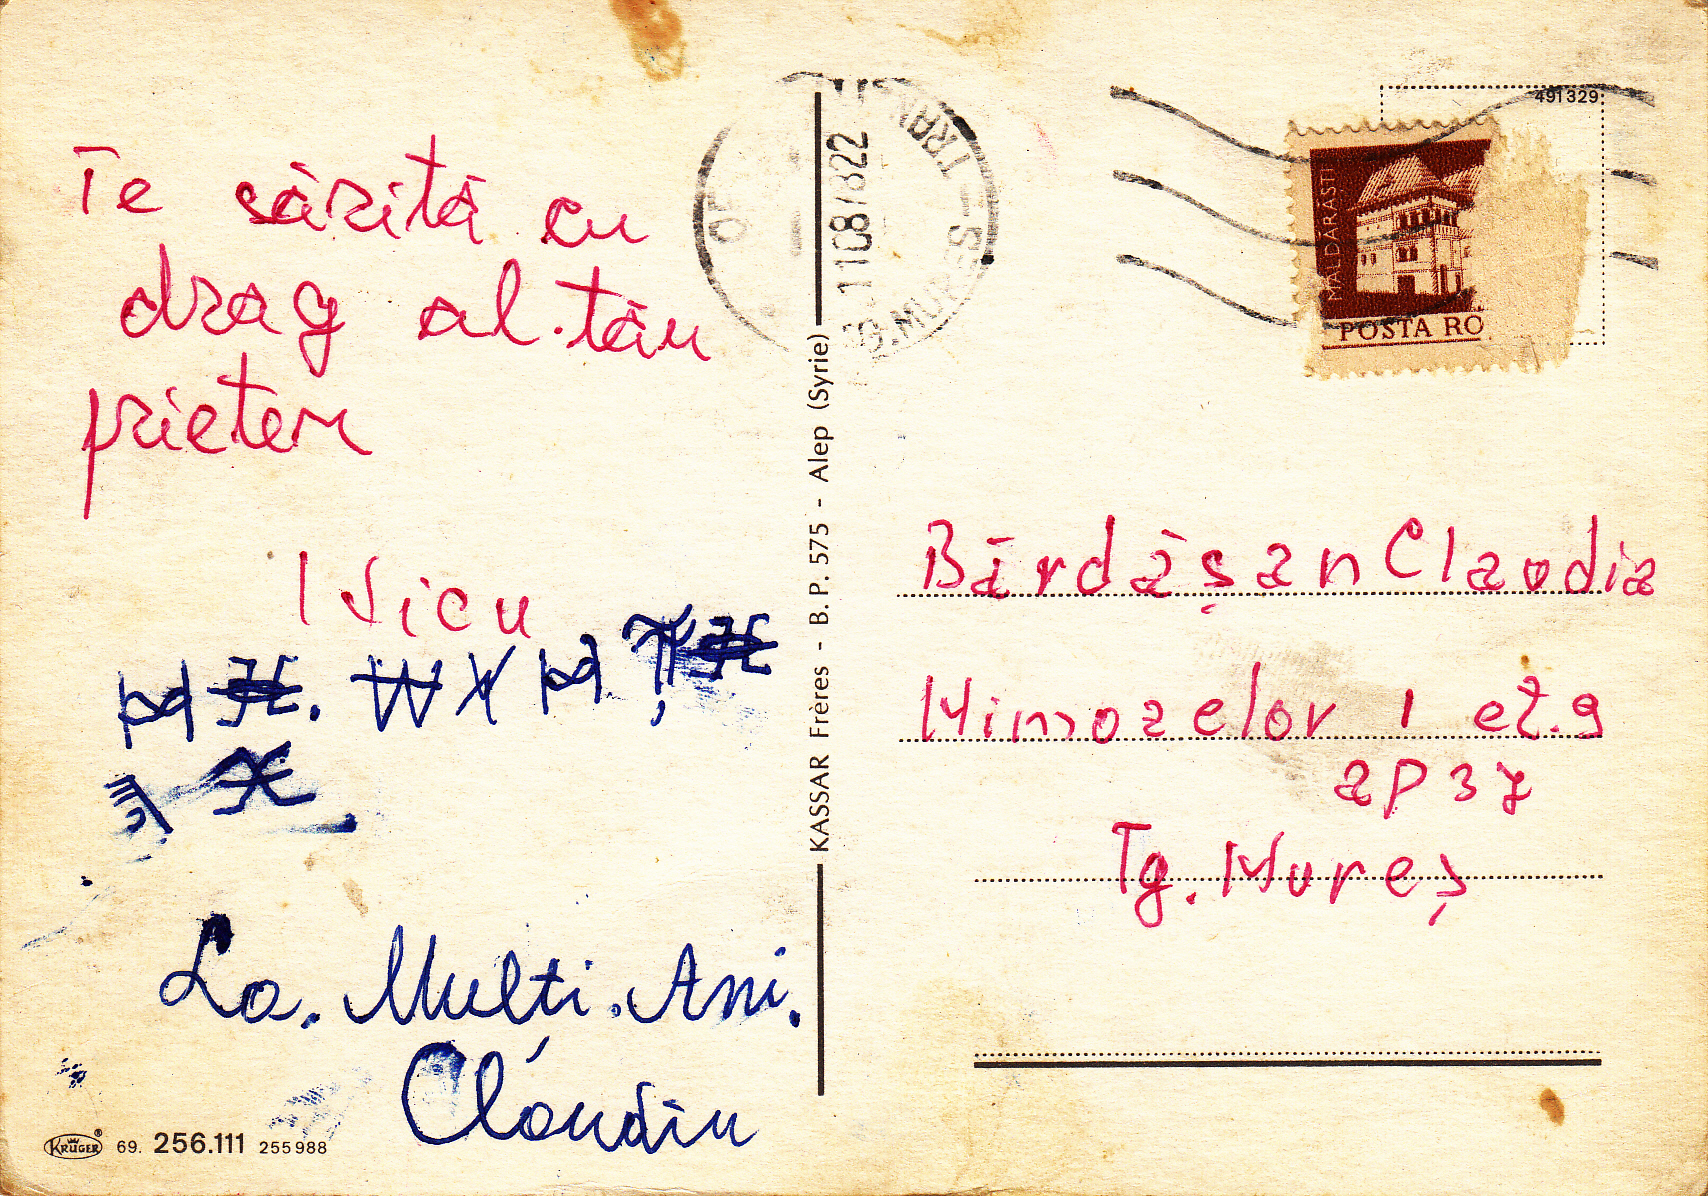 Te sărită cu
drag al tău
prieten
Nicu
La. Multi. Ani.
Claudiu
KRÜGER® 69. 256.111 255988
KASSAR Frères - B. P. 575 - Alep (Syrie)
11087822
TG.MUREȘ
491329
MĂLDĂRĂȘTI
POSTA RO
Bărdășan Claudia
Mimozelor 1 et.9
ap 37
Tg. Mureș